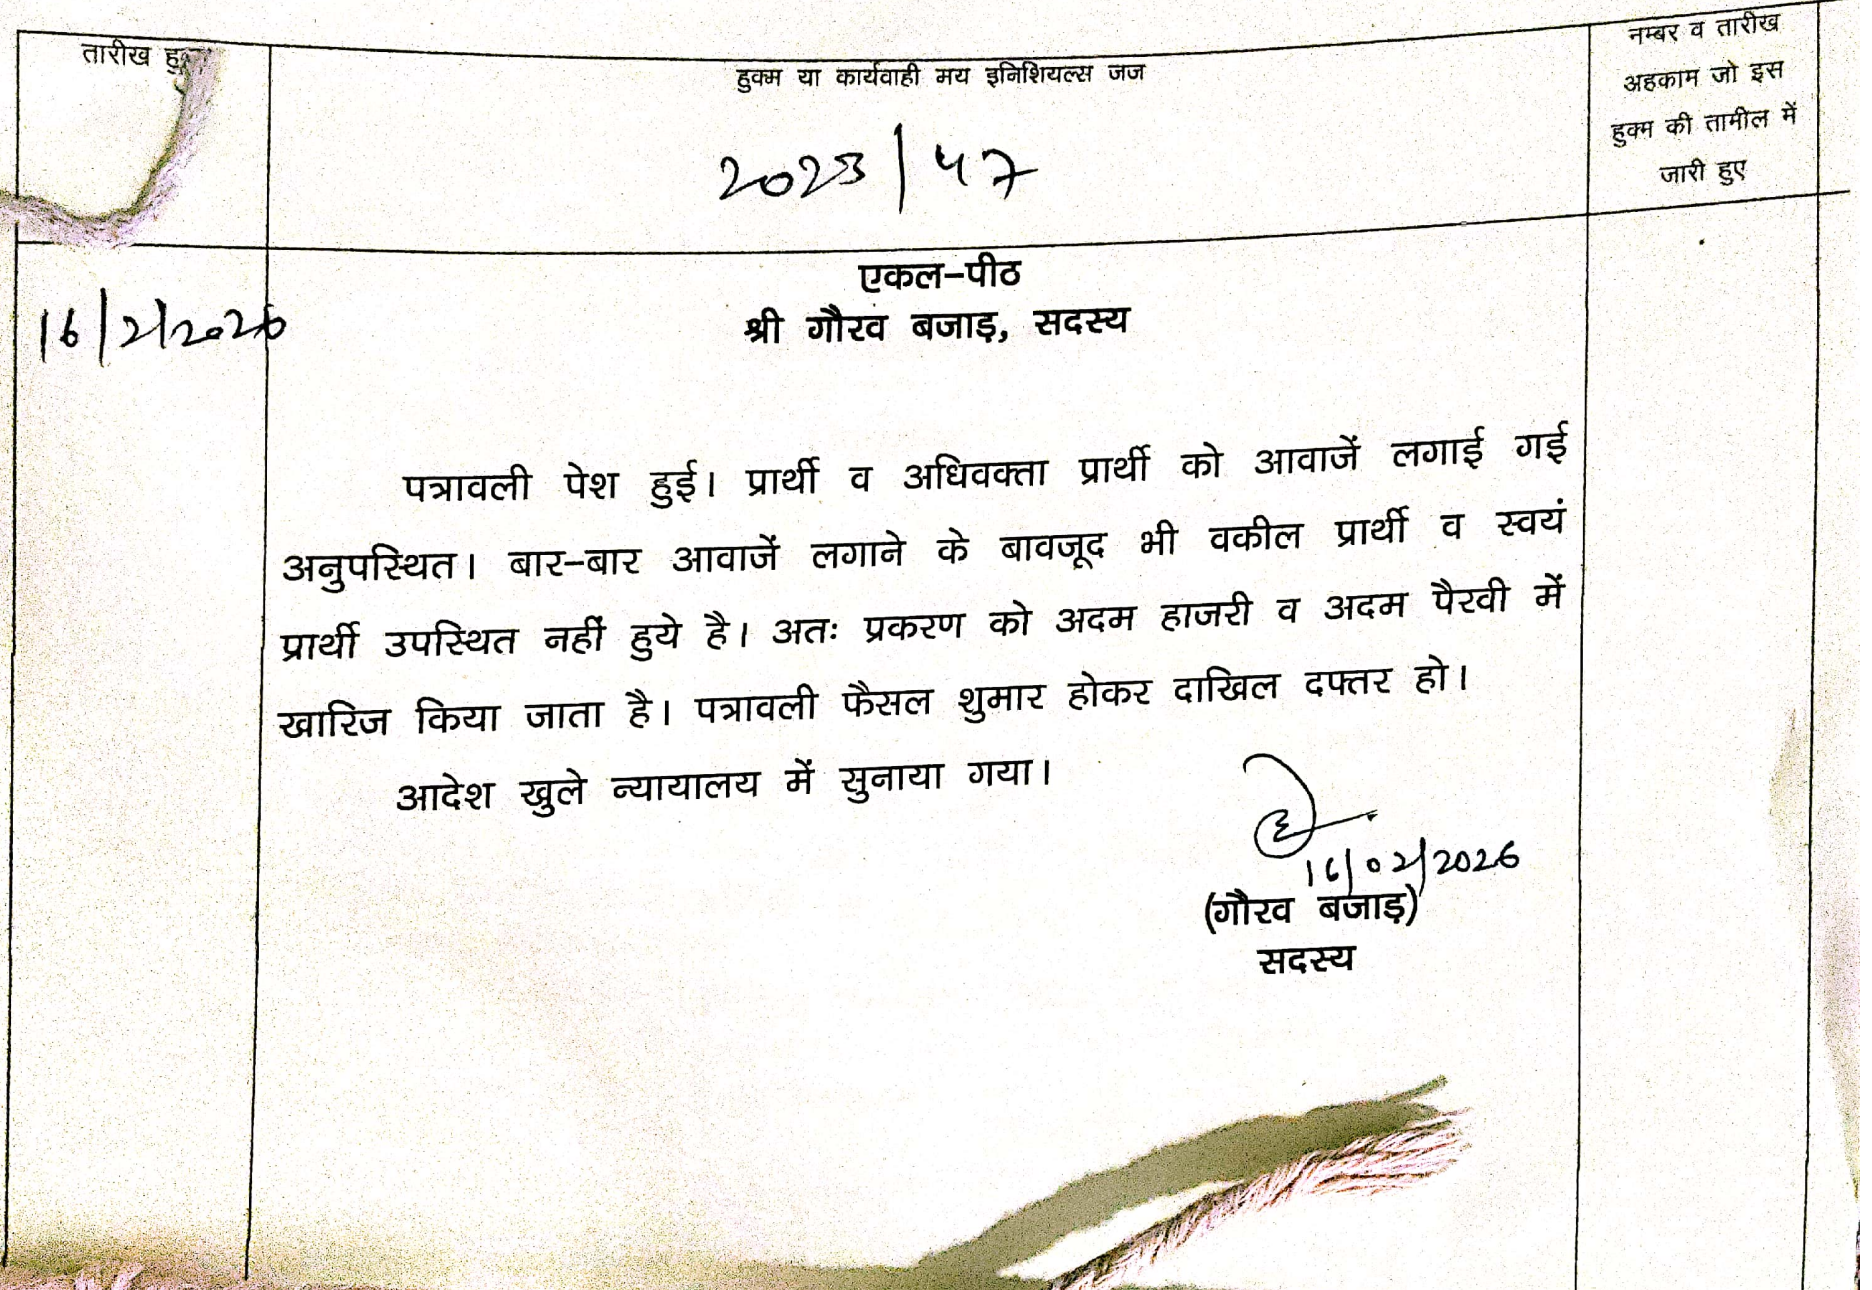 तारीख हु
हुक्म या कार्यवाही मय इनिशियल्स जज
नम्बर व तारीख
अहकाम जो इस
हुक्म की तामील में
जारी हुए
2023/47
16/2/2026
एकल-पीठ
श्री गौरव बजाड़, सदस्य
पत्रावली पेश हुई। प्रार्थी व अधिवक्ता प्रार्थी को आवाजें लगाई गई
अनुपस्थित। बार-बार आवाजें लगाने के बावजूद भी वकील प्रार्थी व स्वयं
प्रार्थी उपस्थित नहीं हुये है। अतः प्रकरण को अदम हाजरी व अदम पैरवी में
खारिज किया जाता है। पत्रावली फैसल शुमार होकर दाखिल दफ्तर हो।
आदेश खुले न्यायालय में सुनाया गया।
16/02/2026
(गौरव बजाड़)
सदस्य